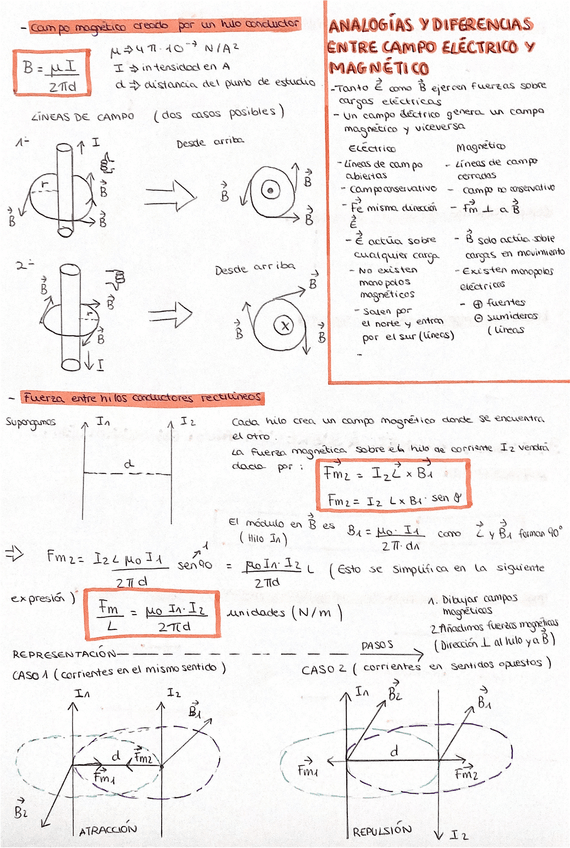 - Campo magnético creado por un hilo conductor
B = μ I / 2πd
μ → 4π·10⁻⁷ N/A²
I → intensidad en A
d → distancia del punto de estudio
LÍNEAS DE CAMPO (dos casos posibles)
1-
I
r
B
B
B
Desde arriba
B
B
2-
B
B
r
B
I
Desde arriba
B
X
B
ANALOGÍAS Y DIFERENCIAS
ENTRE CAMPO ELÉCTRICO Y
MAGNÉTICO
- Tanto E como B ejercen fuerzas sobre
cargas eléctricas
- Un campo eléctrico genera un campo
magnético y viceversa
Eléctrico
- Líneas de campo
abiertas
- Campo conservativo
- Fe misma dirección
E
- E actúa sobre
cualquier carga
- No existen
monopolos
magnéticos
- Salen por
el norte y entran
por el sur (líneas)
-
Magnético
- Líneas de campo
cerradas
- Campo no conservativo
- Fm ⊥ a B
- B solo actúa sobre
cargas en movimiento
- Existen monopolos
eléctricos
- ⊕ fuentes
⊖ sumideros
(líneas
- Fuerza entre hilos conductores rectilíneos
Supongamos
I1
I2
d
Cada hilo crea un campo magnético donde se encuentra
el otro.
La fuerza magnética sobre el hilo de corriente I2 vendrá
dada por:
Fm2 = I2 L x B1
Fm2 = I2 L x B1 · sen θ
El módulo en B es
(Hilo I1)
B1 = μ0 · I1 / 2π·d1 como L y B1 forman 90°
⇒ Fm2 = I2 L μ0 I1 / 2πd sen90 1 = μ0 I1 · I2 / 2πd L (Esto se simplifica en la siguiente
expresión)
Fm / L = μ0 I1 · I2 / 2πd
unidades (N/m)
1. Dibujar campos
magnéticos
2. Añadimos fuerzas magnéticas
(Dirección ⊥ al hilo y a B)
REPRESENTACIÓN
PASOS
CASO 1 (corrientes en el mismo sentido)
I1
I2
B1
d
Fm1
Fm2
B2
ATRACCIÓN
CASO 2 (corrientes en sentidos opuestos)
I1
B2
B1
d
Fm1
Fm2
REPULSIÓN
I2